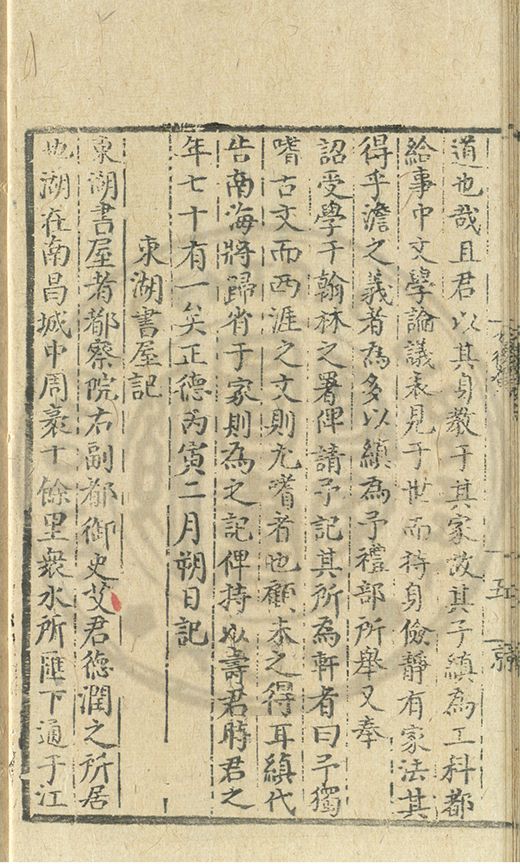 道也哉且君以其身教于其家故其子縝為工科都
給事中文學論議表見于世而持身儉靜有家法其
得乎澹之義者為多以縝為予禮部所舉又奉
詔受學于翰林之署俾請予記其所為軒者曰予獨
嗜古文而西涯之文則尤嗜者也顧未之得耳縝代
告南海將歸省于家則為之記俾持以壽君時君之
年七十有一矣正德丙寅二月朔日記
東湖書屋記
東湖書屋者都察院右副都御史艾君德潤之所居
也湖在南昌城中周袤十餘里衆水所匯下通于江